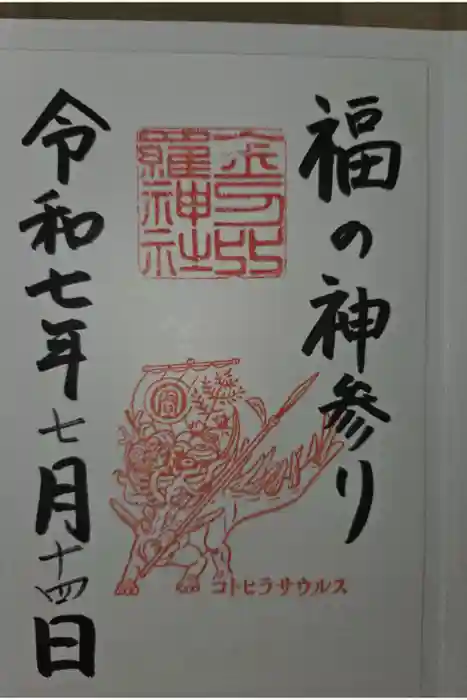 福の神参り
金刀比
羅神社
コトヒラサウルス
令和七年七月十四日